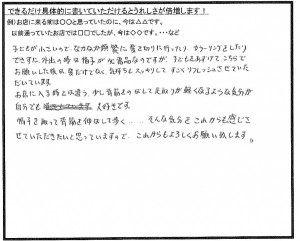 できるだけ具体的に書いていただけるとうれしさが倍増します！
例)お店に来る前は〇〇と思っていたのに、今は△△です。
以前通っていたお店では□□でしたが、今は◇◇です。・・・など
子どもが小さいって、なかなか頻繁に髪を切りに行ったり、カラーリングしたり
できずに、外出の時は帽子が必需品なうですが、子どもをあずけて、こちらで
お願いした後は、髪だけでなく、気持ちもスッキリして、すごくリフレッシュさせていた
だいています。
お店に入る時とは違う、少し背筋がのばして足取りが軽くなるような気分が
自分でも 大好きです。
帽子を取って背筋を伸ばして歩く・・・、そんな気分をこれからも感じさ
せていただきたいと思っていますので、これからもよろしくお願い致します。